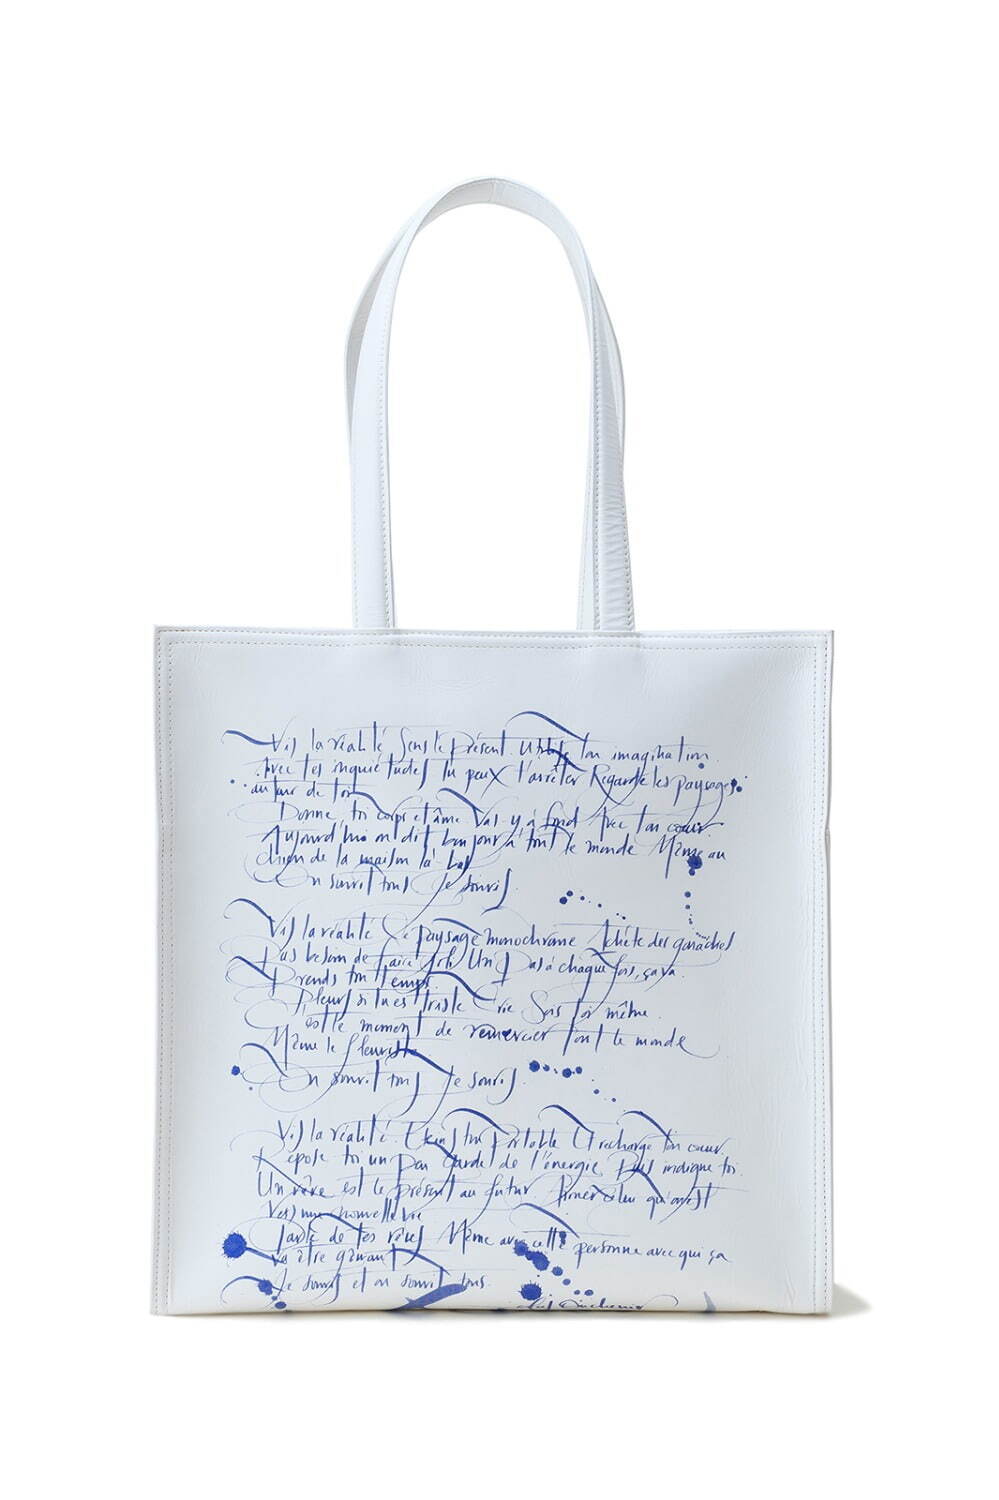 Vis la réalité. Sens le présent. Utilise ton imagination
Avec tes inquiétudes tu peux t'arrêter Regarde les paysages
autour de toi
Donne, toi corps et âme Vas-y à fond Avec ton cœur
Aujourd'hui on dit bonjour à tout le monde Même au
chien de la maison là bas
On sourit tous Je souris.
Vis la réalité Le paysage monochrome Achète des
Pas besoin de faire Un pas à chaque fois, ça va
Prends ton temps.
Pleurs si tu es triste Crie Sois toi même.
C'est le moment de remercier tout le monde
Même le fleuriste
On sourit tous Je souris.
Vis la réalité. Eteins ton portable Et recharge ton cœur.
Repose toi un peu Garde de l'énergie, Puis indigne toi.
Un rêve est le présent au futur. celui qui
Vers une nouvelle vie
Parle de tes rêves Même avec cette personne avec qui ça
va être gênant
Je souris et on sourit tous.